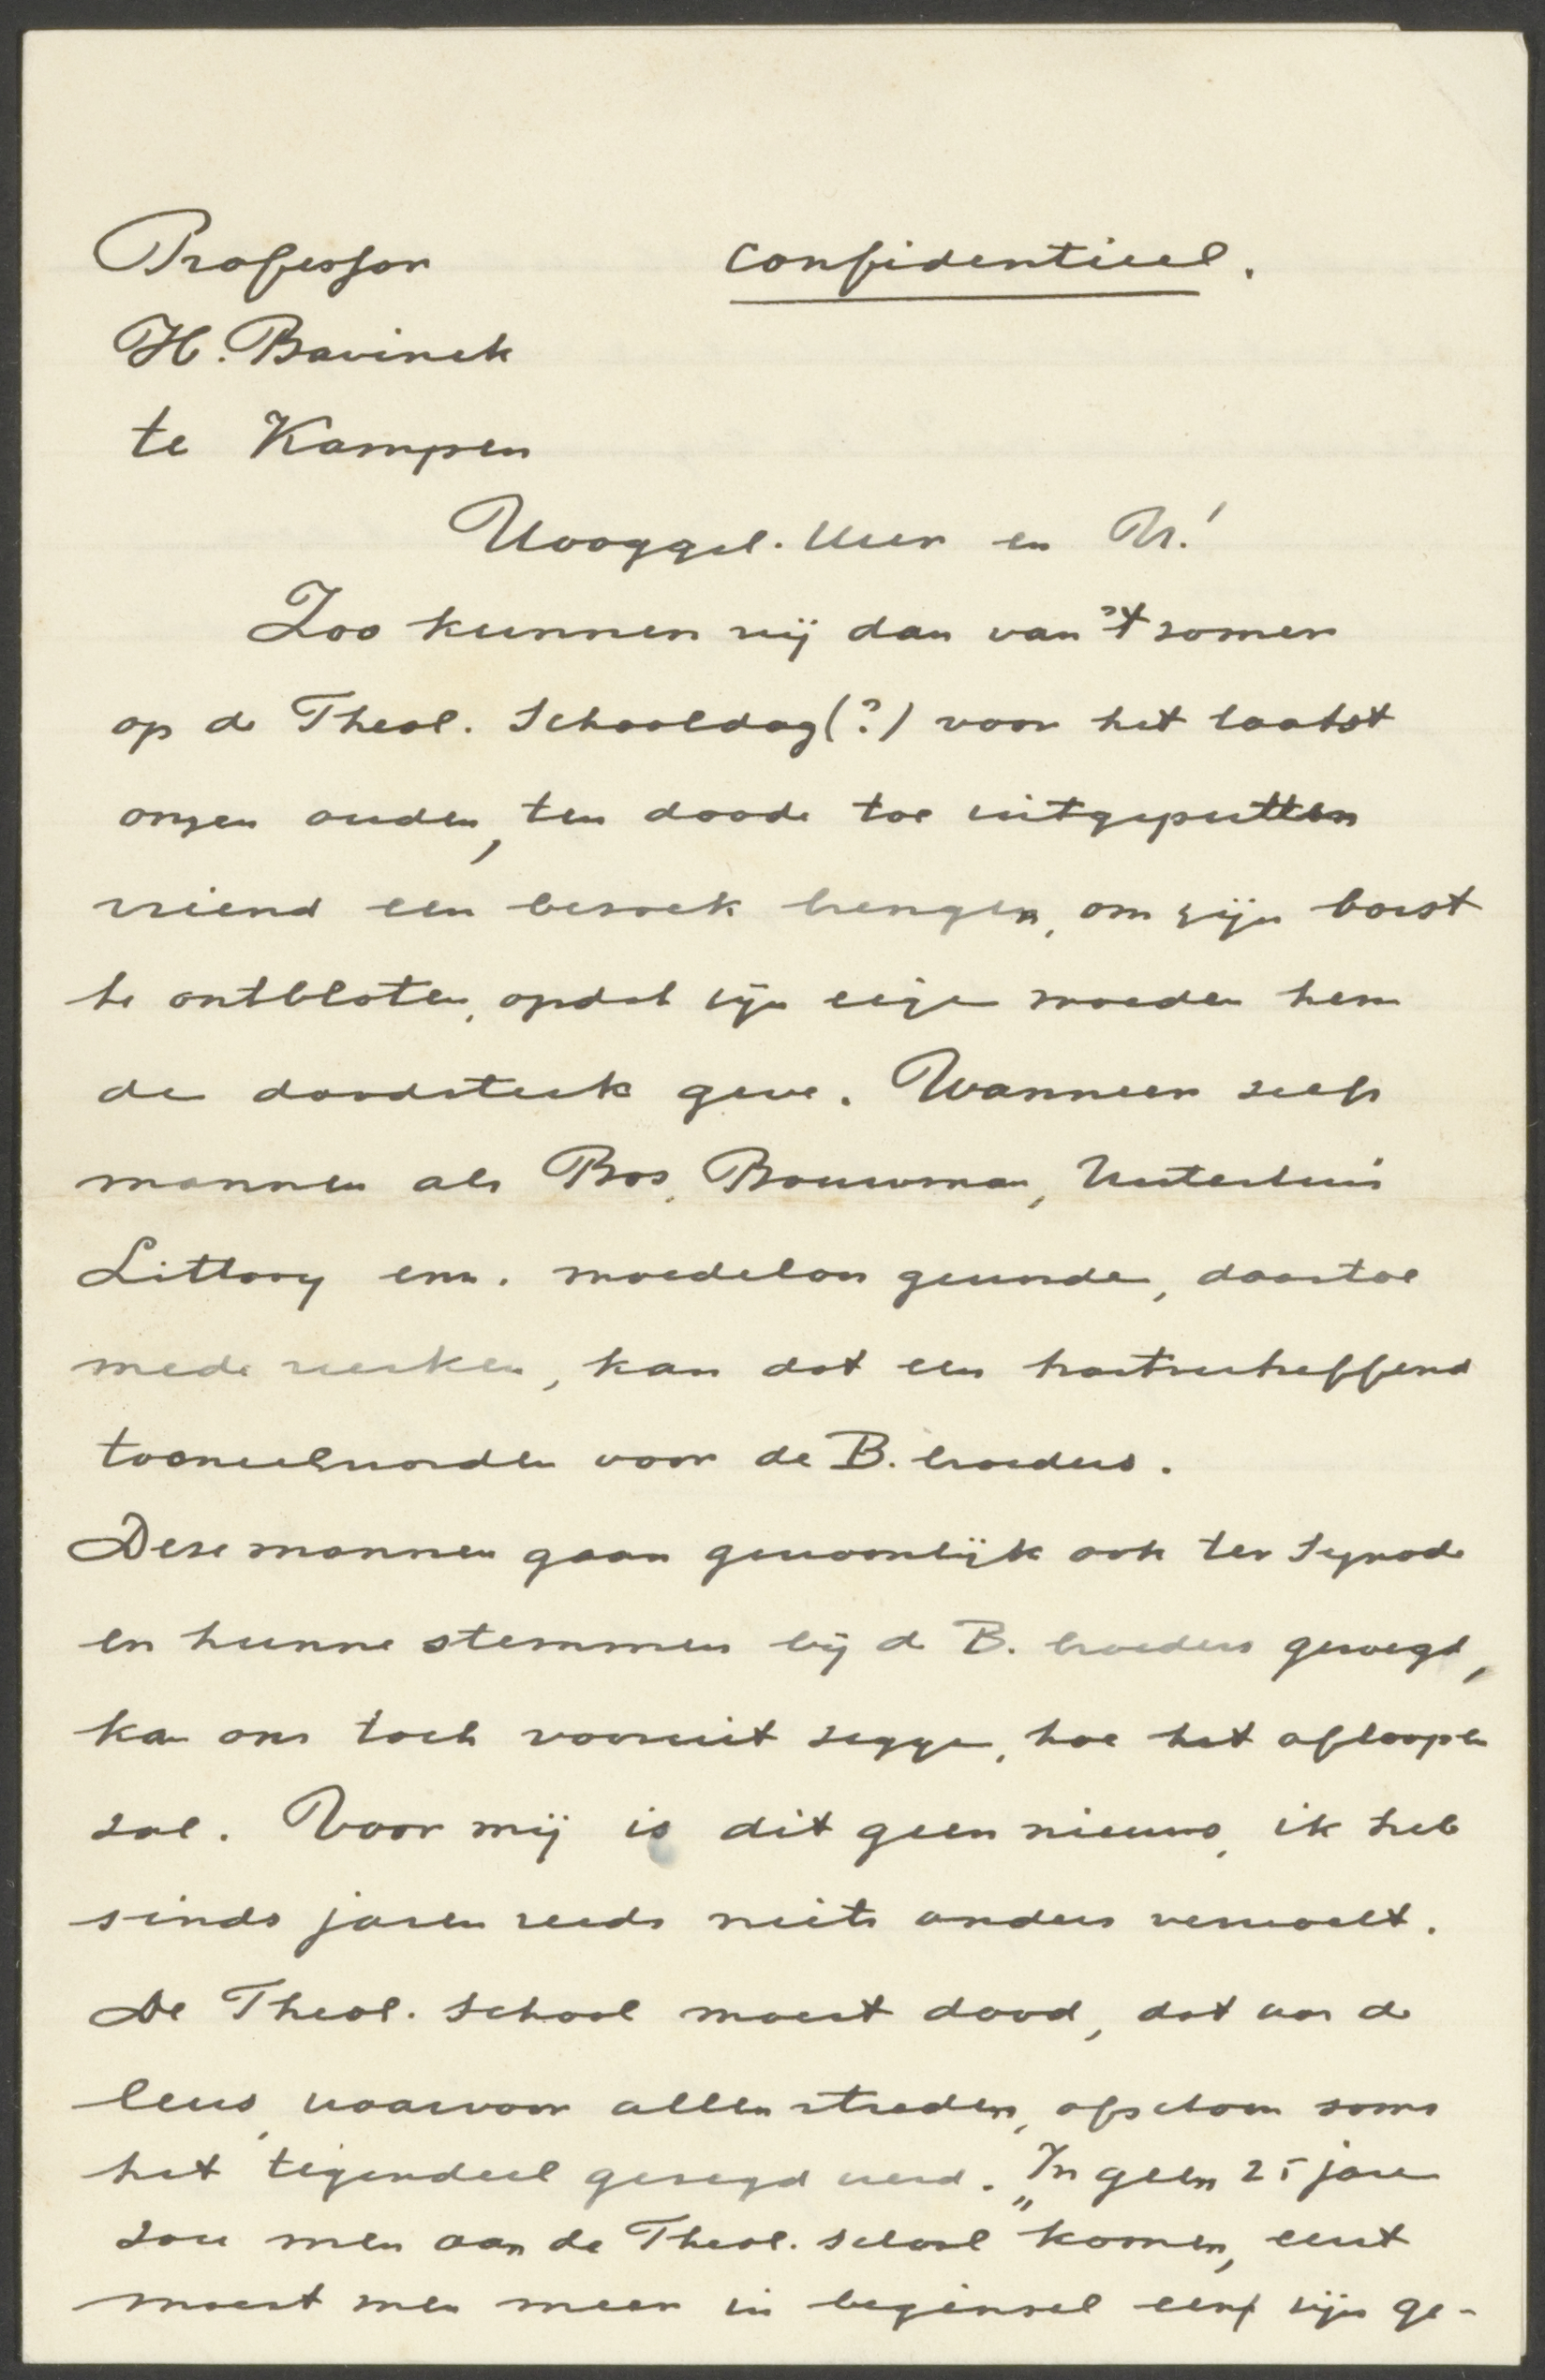 Professor confidentieel.
H. Bavinck
te Kampen
Hooggel. Heer en Vr!
Zoo kunnen wij dan van 't zomer
op de Theol. Schooldag (?) voor het laatst
onzen ouden, ten doode toe uitgeputten
vriend een bezoek brengen, om zijn borst
te ontbloten, opdat zijn eigen moeder hem
de doodsteek geve. Wanneer zelfs
mannen als Bos, Bouwman,
Littooy enz. moedeloos geworden, daartoe
mede werken, kan dat een hartverheffend
tooneel worden voor de B. broeders.
Deze mannen gaan gewoonlijk ook ter Synode
en hunne stemmen bij de B. broeders gevoegd,
kan ons toch vooruit zeggen, hoe het afloopen
zal. Voor mij is dit geen nieuws, ik heb
sinds jaren reeds niets anders verwacht.
De Theol. School moest dood, dat was de
leus, waarvoor allen streden, ofschoon soms
het tegendeel gezegd werd. „In geen 25 jaren
zou men aan de Theol. school komen, eerst
moest men meer in beginsel een zijn ge-